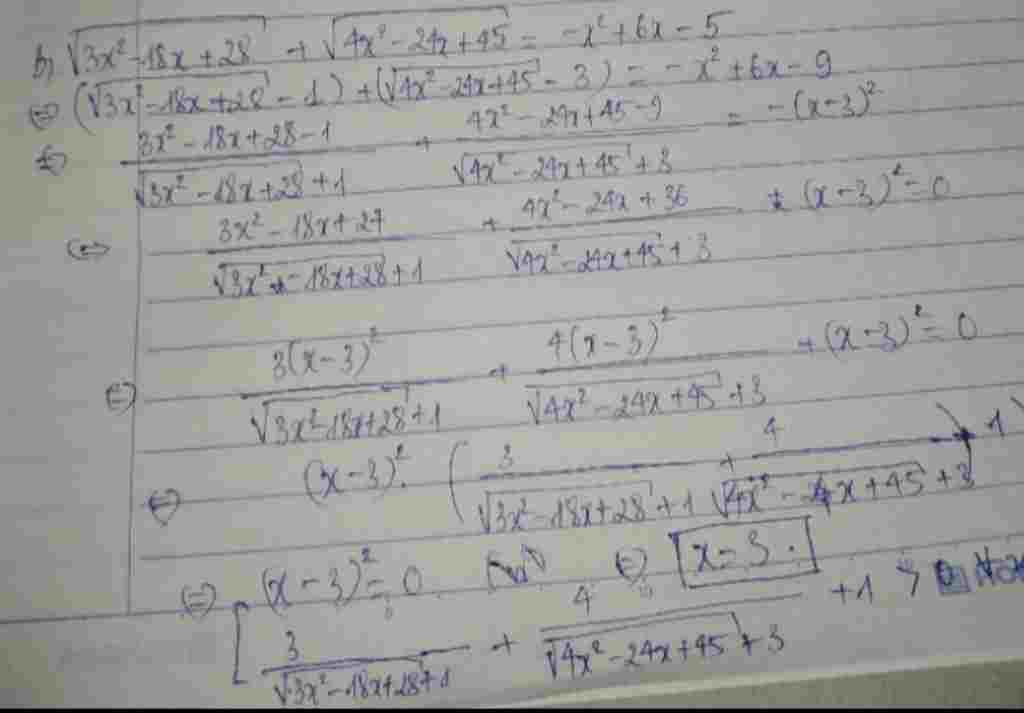 b) √(3x² - 18x + 28) + √(4x² - 24x + 45) = -x² + 6x - 5
⇔ (√(3x² - 18x + 28) - 1) + (√(4x² - 24x + 45) - 3) = -x² + 6x - 9
⇔ (3x² - 18x + 28 - 1)/(√(3x² - 18x + 28) + 1) + (4x² - 24x + 45 - 9)/(√(4x² - 24x + 45) + 3) = -(x - 3)²
⇔ (3x² - 18x + 27)/(√(3x² - 18x + 28) + 1) + (4x² - 24x + 36)/(√(4x² - 24x + 45) + 3) + (x - 3)² = 0
⇔ 3(x - 3)²/(√(3x² - 18x + 28) + 1) + 4(x - 3)²/(√(4x² - 24x + 45) + 3) + (x - 3)² = 0
⇔ (x - 3)². (3/(√(3x² - 18x + 28) + 1) + 4/(√(4x² - 24x + 45) + 3) + 1)
⇔ [ (x - 3)² = 0 ⇔ x = 3.
3/(√(3x² - 18x + 28) + 1) + 4/(√(4x² - 24x + 45) + 3) + 1 > 0